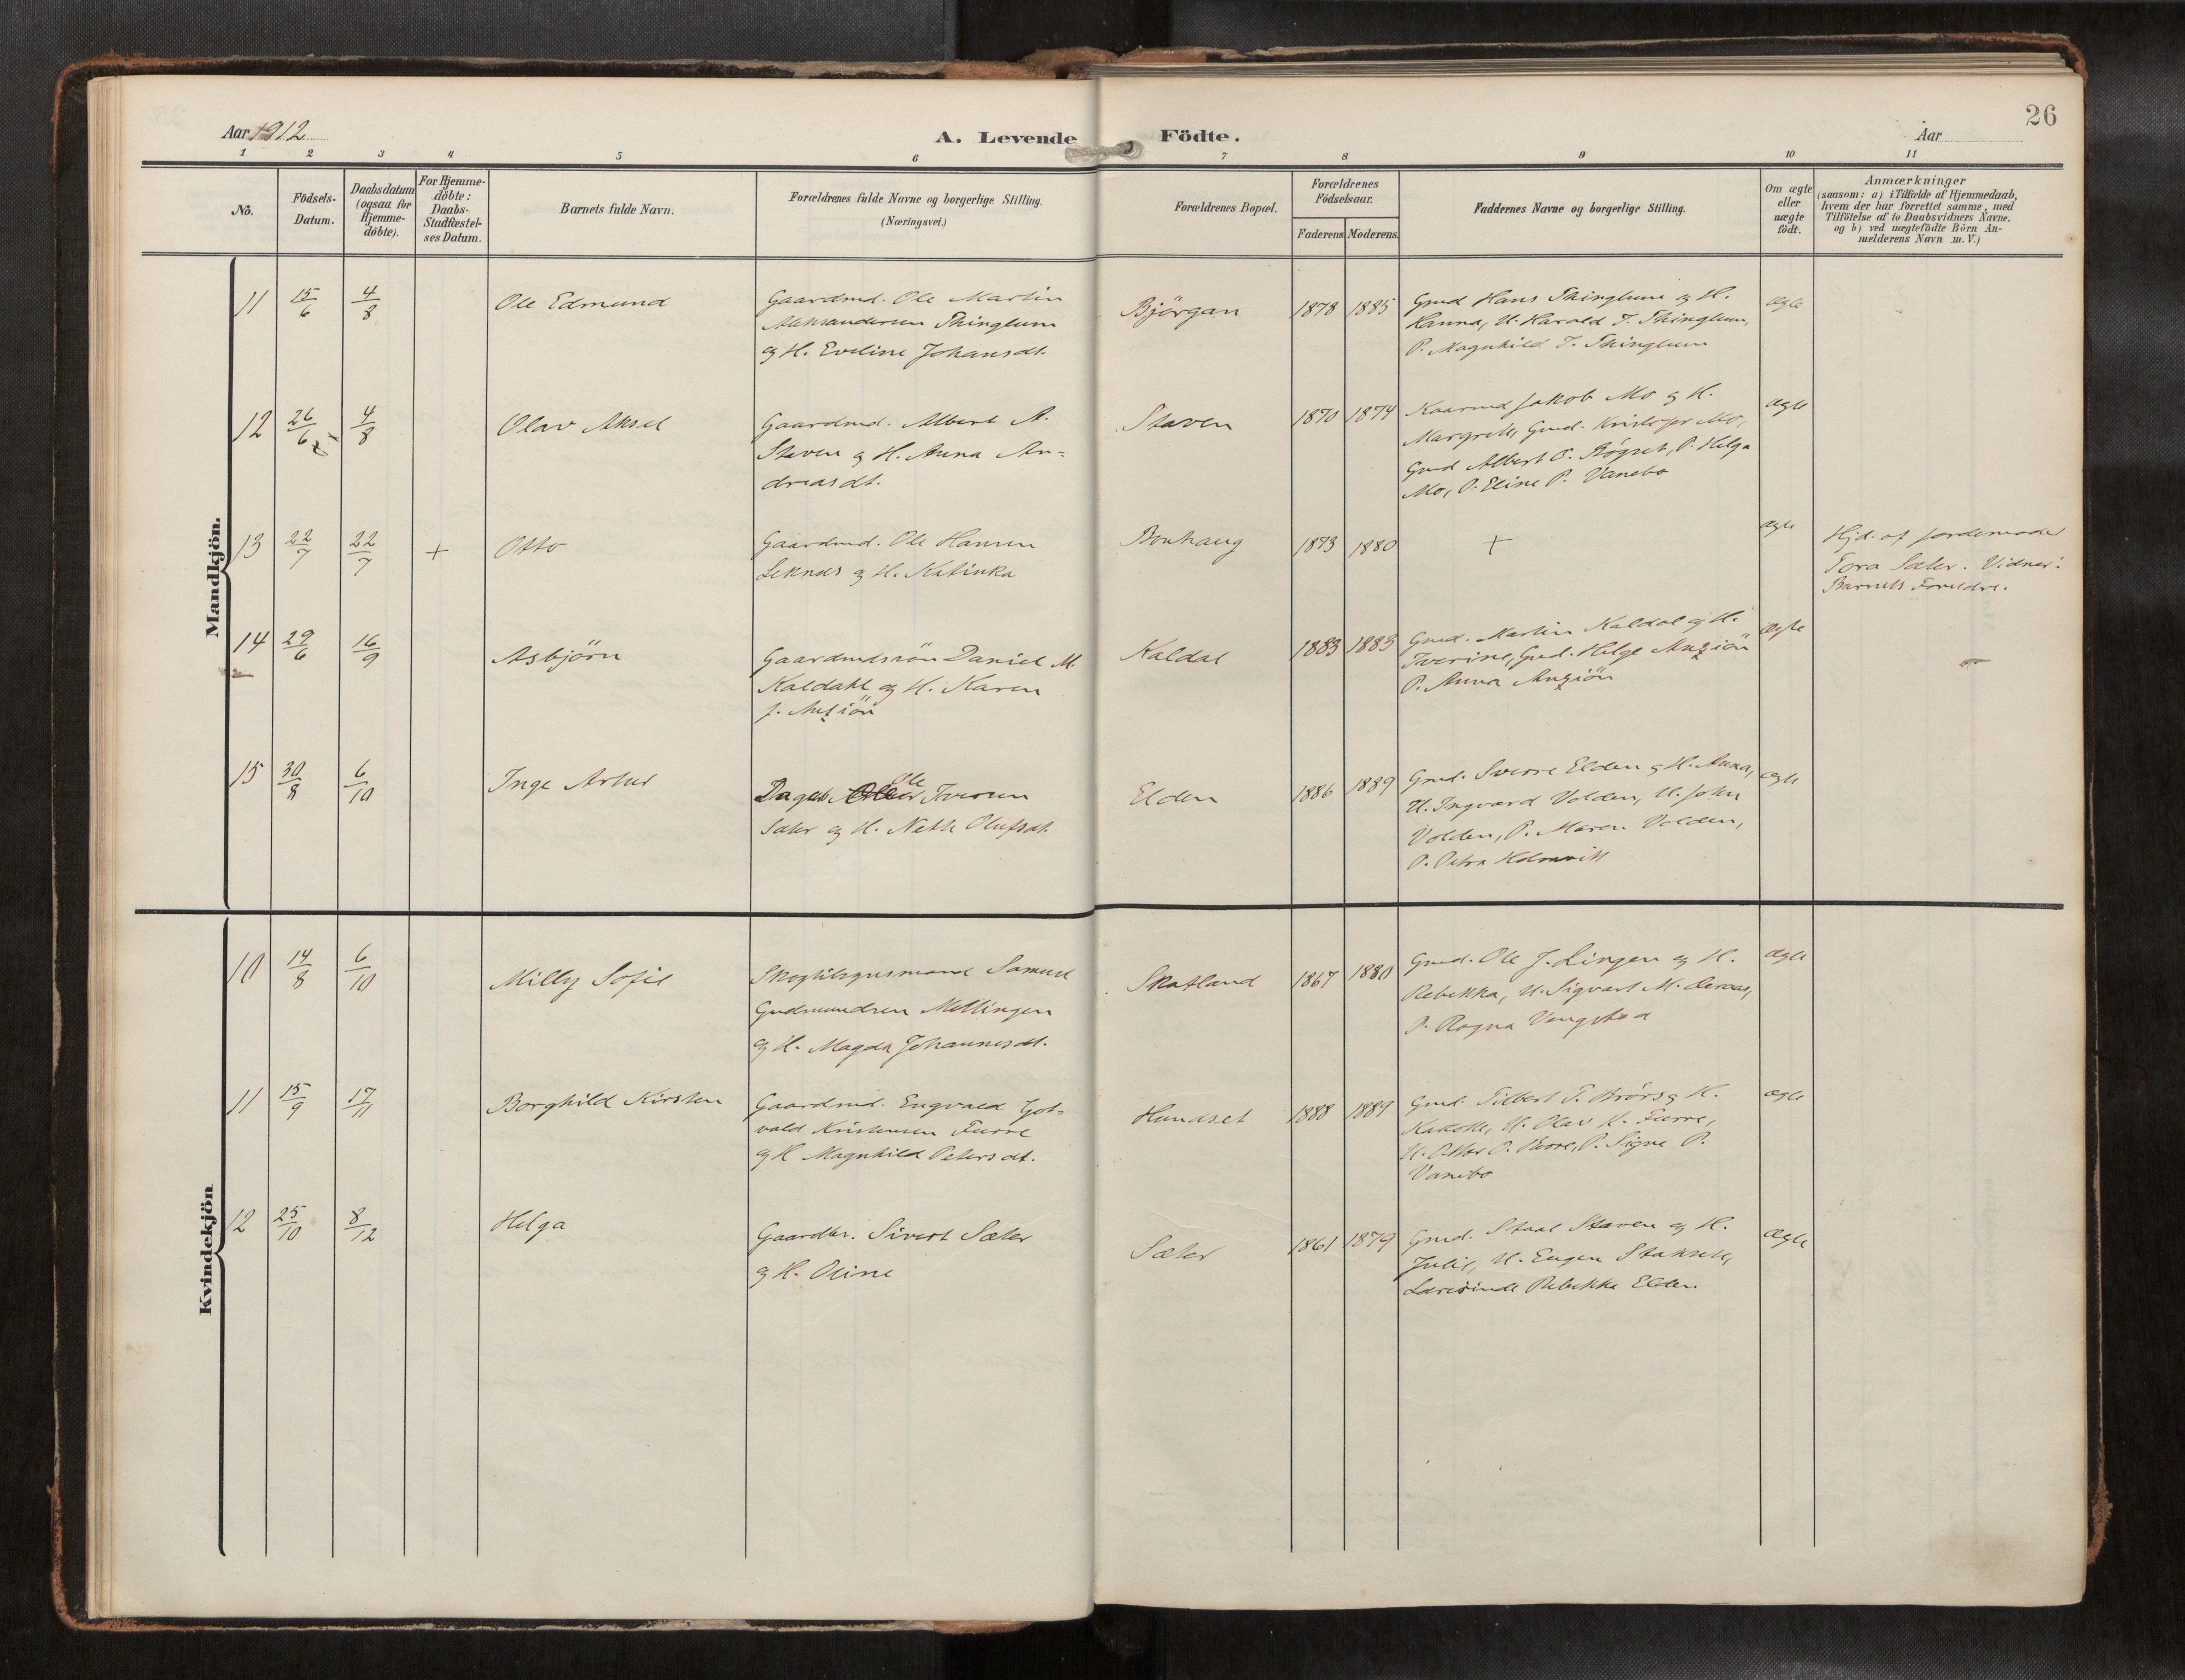 26
Aar 1912
A. Levende Födte.
Aar
1 2 3 4 5 6 7 8 9 10 11
No.
Födsels-
Datum.
Daabsdatum
(ogsaa for
Hjemme-
döbte).
For Hjemme-
döbte:
Daabs-
Stadfæstel-
ses Datum.
Barnets fulde Navn.
Forældrenes fulde Navne og borgerlige Stilling.
(Næringsvei.)
Forældrenes Bopæl.
Forældrenes
Födselsaar.
Faderens. Moderens.
Faddernes Navne og borgerlige Stilling.
Om ægte
eller
uægte
födt.
Anmærkninger
(saasom: a) i Tilfælde af Hjemmedaab,
hvem der har forrettet samme, med
Tilföielse af to Daabsvidners Navne.
og b) ved uægtefödte Börn An-
melderens Navn m. V.)
Mandkjön.
11 15/6 4/8 Ole Edmund
Gaardmd. Ole Martin
Aleksandersen Thinglum
og H. Eveline Johansdt.
Björgan 1878 1885
Gmd Hans Thinglum og H.
Hanna, U. Harald T. Thinglum,
P. Magnhild T. Thinglum
ægte
12 26/6 4/8 Olav Aksel
Gaardmd. Albert A.
Staven og H. Anna An-
dreasdt.
Staven 1870 1874
Kaarmd Jakob Mo og H.
Margrete, Gmd. Mo,
Gmd Albert P. P. Helga
Mo, P. Eline P. Vanebo
ægte
13 22/7 22/7 + Otto
Gaardmd. Ole Hansen
Leknes og H. Katinka
Bonhaug 1873 1880
+
ægte
Hjd. af jordemoder
Tora Sæter. Vidner:
Barnets Foreldre.
14 29/6 16/9 Asbjörn
Gaardmdssön Daniel M.
Kaldahl og H. Karen
J. Anziön
Kaldal 1883 1883
Gmd. Martin Kaldal og H.
Iverine, Gmd. Helge Anziön
P. Anna Anziön
ægte
15 30/8 6/10 Inge Artur
Ole
Dagarb. Iversen
Sæter og H. Nette Olufsdt.
Elden 1886 1889
Gmd. Sverre Elden og H. Anna,
U. Ingvard Volden, U. John
Volden, P. Maren Volden,
P. Petra
ægte
Kvindekjön
10 14/8 6/10 Milly Sofie
Skogtilsynsmand Samuel
Gudmundsen Mellingen
og H. Magda Johannesdt.
Skatland 1867 1880
Gmd. Ole J. Lingen og H.
Rebekka, U. Sigvart M. Deraas,
P. Ragna Vengstad
ægte
11 15/9 17/11 Borghild Kirsten
Gaardmd. Engvald Got-
vald Kristensen Furre
og H Magnhild Petersdt.
Hundset 1888 1889
Gmd. Tilbert T. og H.
U. Olav K. Furre,
P. Signe P.
Vanebo
ægte
12 25/10 8/12 Helga
Gaardbr. Sivert Sæter
og H. Oline
Sæter 1861 1879
Gmd. Staal Staven og H.
Julie, U. Eugen
Lærerinde Rebekka Elden.
ægte